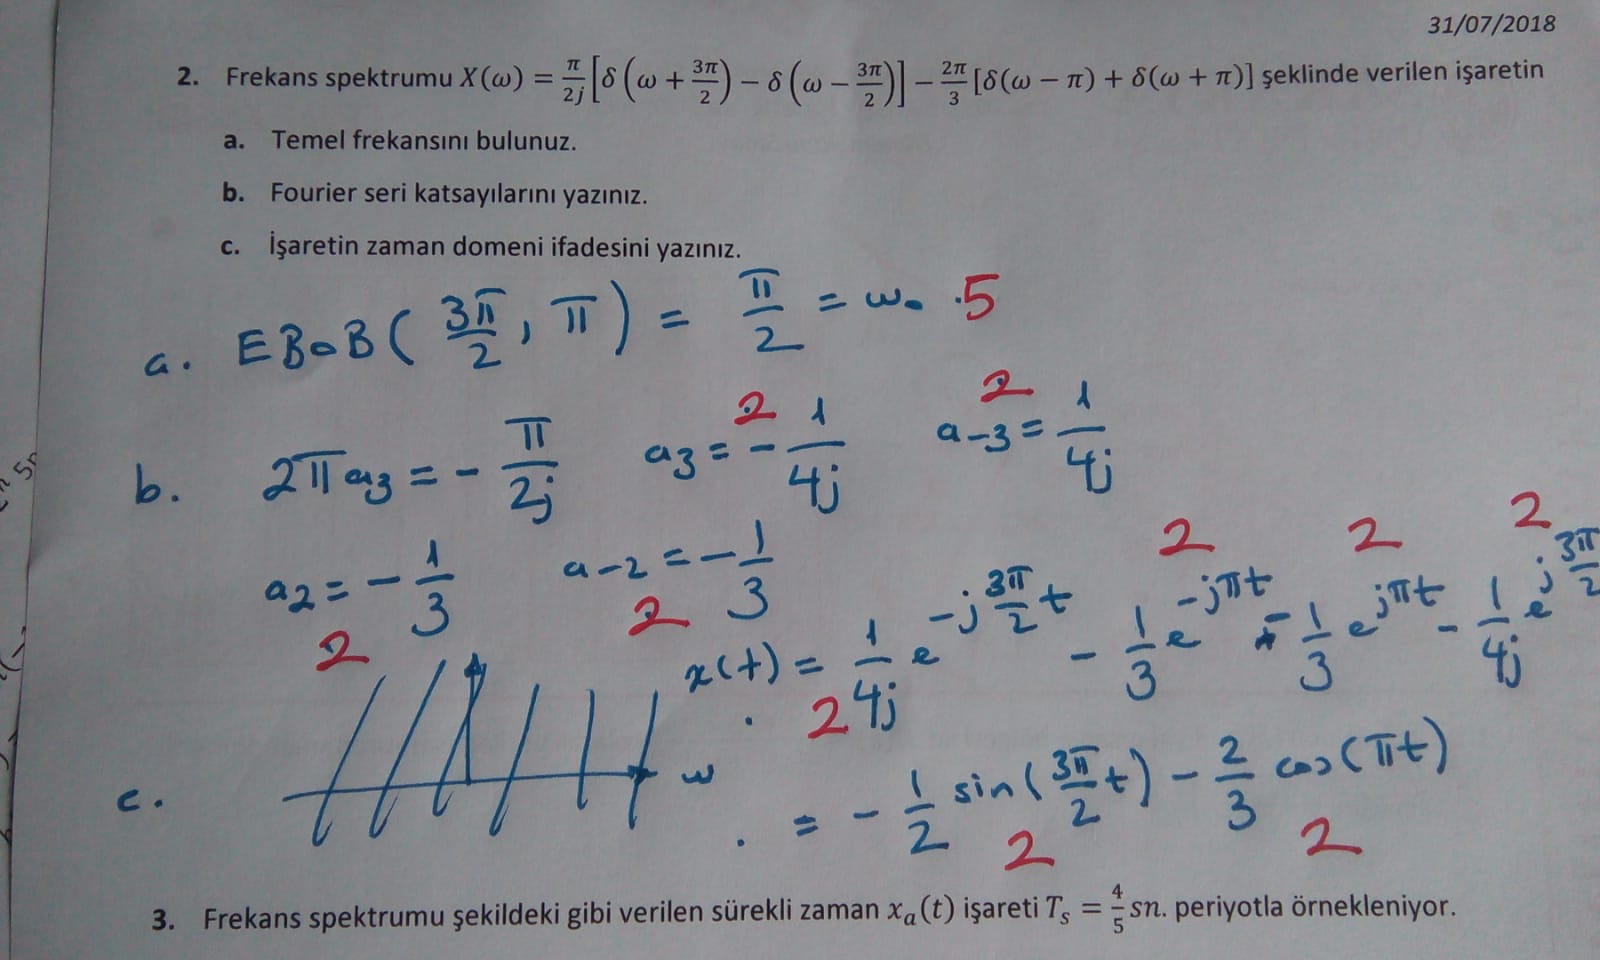 31/07/2018
2. Frekans spektrumu X(ω) = π/2j [δ(ω + 3π/2) − δ(ω − 3π/2)] − 2π/3 [δ(ω − π) + δ(ω + π)] şeklinde verilen işaretin
a. Temel frekansını bulunuz.
b. Fourier seri katsayılarını yazınız.
c. İşaretin zaman domeni ifadesini yazınız.
a. EBOB(3π/2, π) = π/2 = ω₀ 5
2 2
b. 2πa₃ = −π/2j a₃ = −1/4j a₋₃ = 1/4j
a₂ = −1/3 a₋₂ = −1/3
2 2
2 2 2
x(t) = 1/4j e^(−j 3π/2 t) − 1/3 e^(−jπt) − 1/3 e^(jπt) − 1/4j e^(j 3π/2
2
c. ω
= −1/2 sin(3π/2 t) − 2/3 cos(πt)
2 2
3. Frekans spektrumu şekildeki gibi verilen sürekli zaman xₐ(t) işareti Tₛ = 4/5 sn. periyotla örnekleniyor.